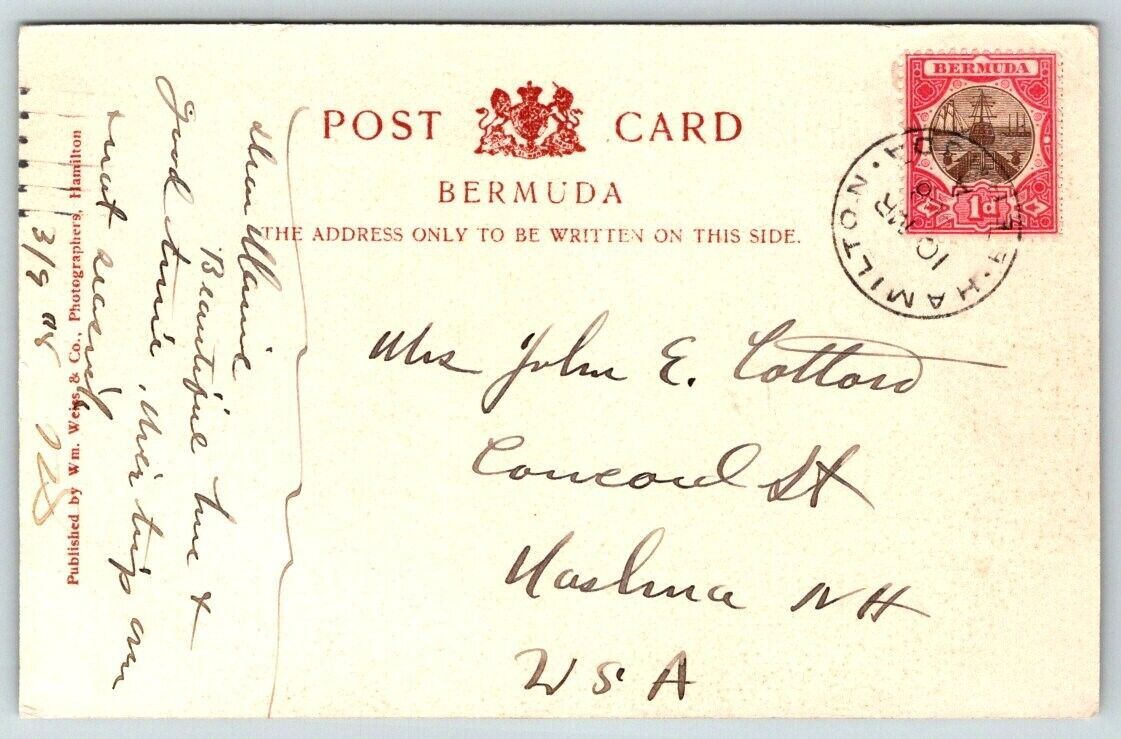 POST CARD
BERMUDA
THE ADDRESS ONLY TO BE WRITTEN ON THIS SIDE.
BERMUDA
1d
HAMILTON · BERMUDA ·
10 MR
Mrs John E. Cotton
Concord St
Nashua NH
USA
Dear Mamie
Beautiful here &
good time. Nice trip over
& not seasick
3/9 08
Published by Wm. Weiss & Co., Photographers, Hamilton